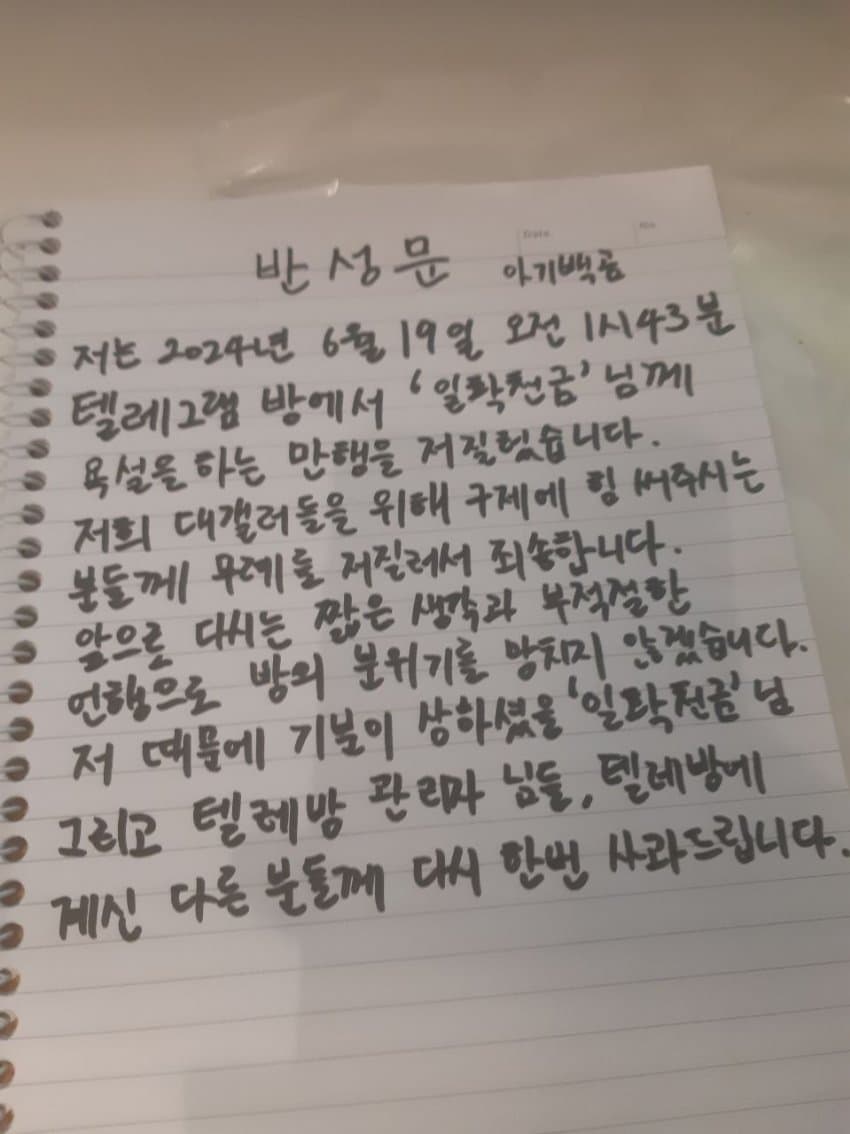 반성문 아기백곰
Date No
저는 2024년 6월 19일 오전 1시43분
텔레그램 방에서 '일확천금'님께
욕설을 하는 만행을 저질렀습니다.
저희 대갤러들을 위해 구제에 힘 써주시는
분들께 무례를 저질러서 죄송합니다.
앞으로 다시는 짧은 생각과 부적절한
언행으로 방의 분위기를 망치지 않겠습니다.
저 때문에 기분이 상하셨을 '일확천금'님
그리고 텔레방 관리자 님들, 텔레방에
계신 다른 분들께 다시 한번 사과드립니다.